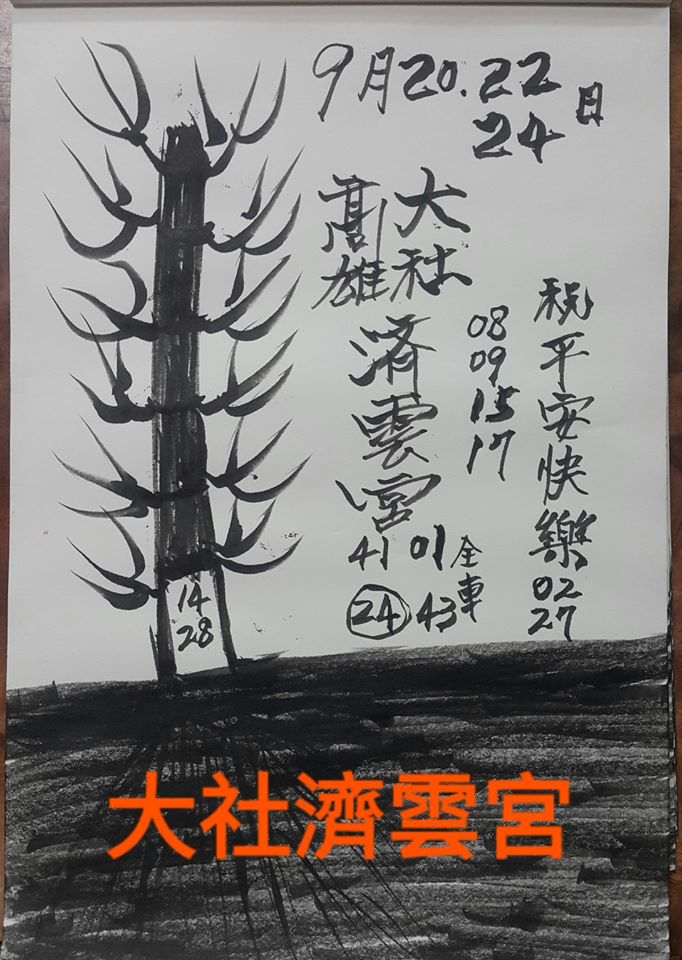 9月20.22
24日
高雄
大社
済雲宮
08
09
15
17
祝平安快樂
02
27
41 01 全車
24 43
14
28
大社濟雲宮